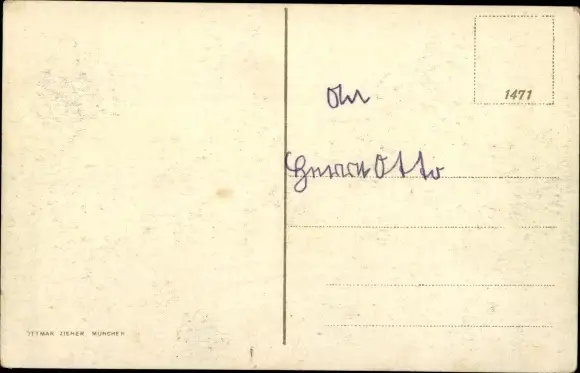 1471
An
Herrn Otto
OTTMAR ZIEHER, MÜNCHEN